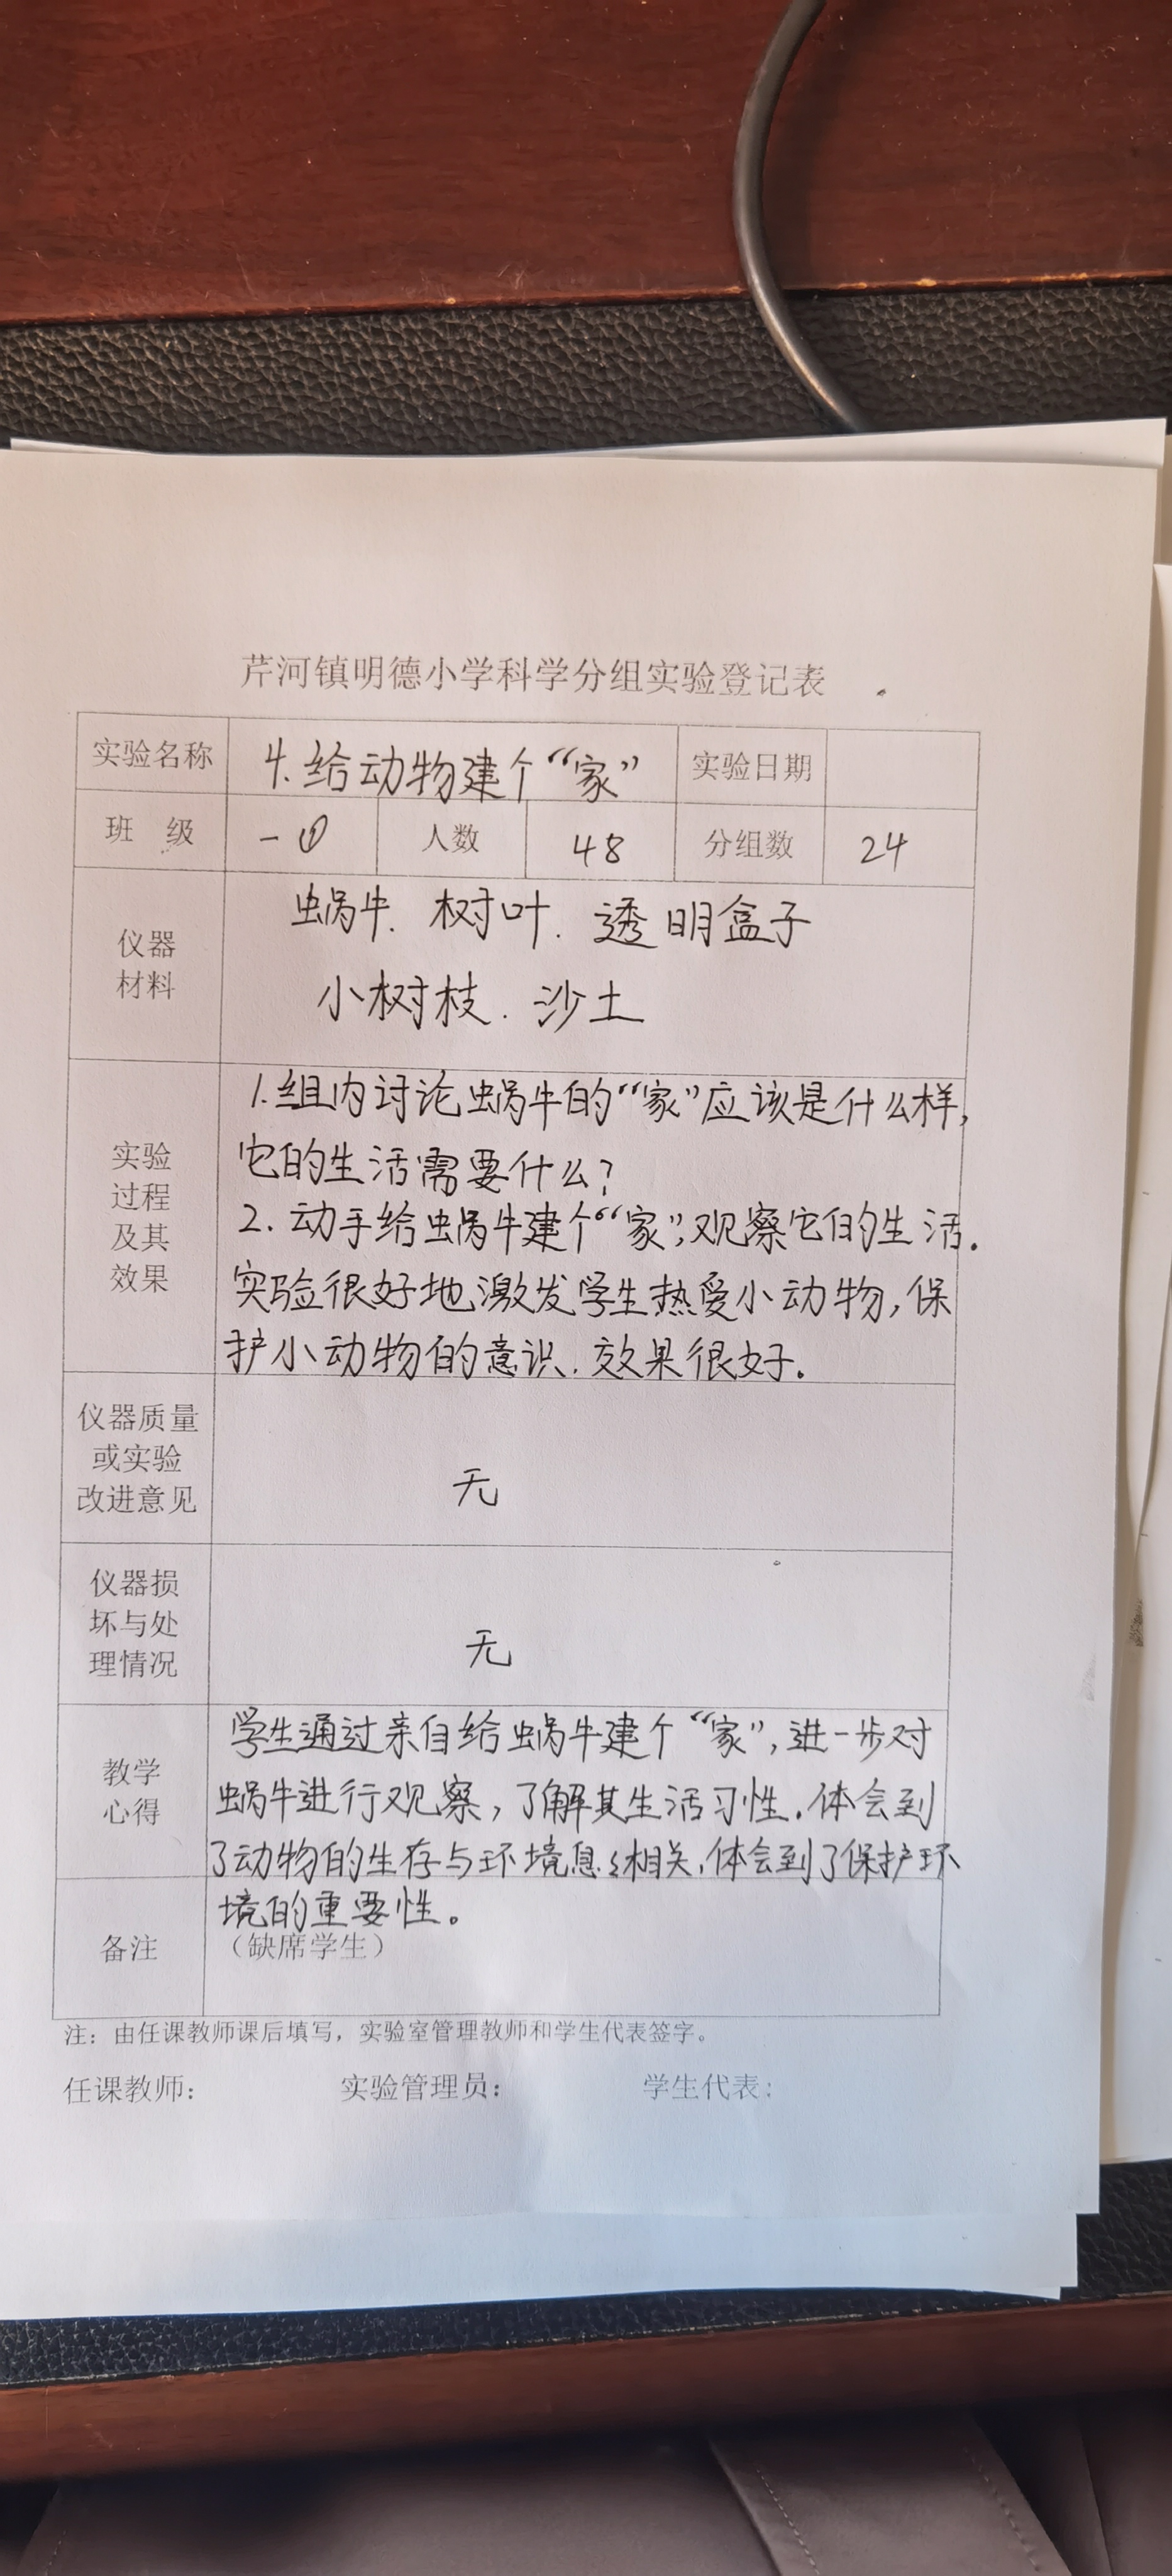 芹河镇明德小学科学分组实验登记表
实验名称 4.给动物建个“家” 实验日期
班 级 一① 人数 48 分组数 24
仪器
材料
蜗牛. 树叶. 透明盒子
小树枝. 沙土
实验
过程
及其
效果
1.组内讨论蜗牛的“家”应该是什么样,
它的生活需要什么?
2.动手给蜗牛建个“家”,观察它的生活.
实验很好地激发学生热爱小动物,保
护小动物的意识.效果很好.
仪器质量
或实验
改进意见
无
仪器损
坏与处
理情况
无
教学
心得
学生通过亲自给蜗牛建个“家”,进一步对
蜗牛进行观察,了解其生活习性.体会到
了动物的生存与环境息々相关,体会到了保护环
境的重要性。
备注
（缺席学生）
注：由任课教师课后填写，实验室管理教师和学生代表签字。
任课教师： 实验管理员： 学生代表：